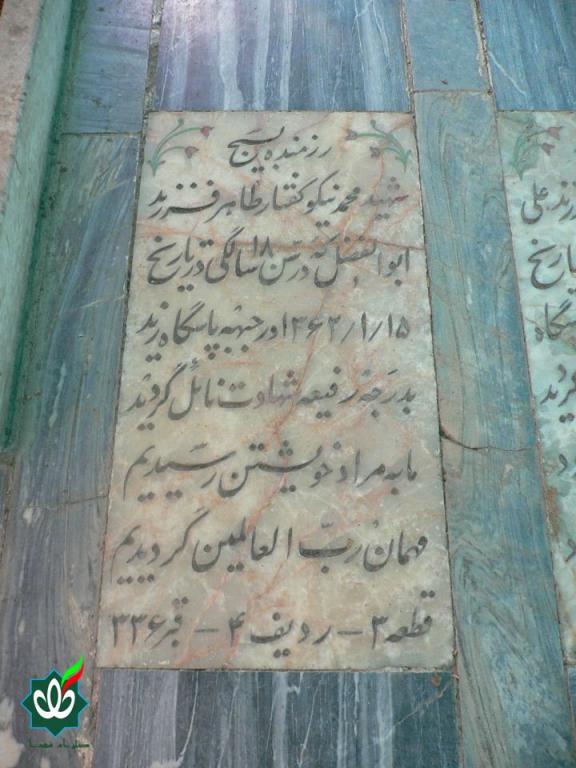 رزمنده بسیج
شهید محمد نیکو گفتار طاهر فرزند
ابوالفضل که در سن ۱۸ سالگی در تاریخ
۱۳۶۲/۱/۱۵ در جبهه پاسگاه زید
بدرجه رفیعه شهادت نائل گردید
ما به مراد خویشتن رسیدیم
مهمان رب العالمین گردیدیم
قطعه ۳ - ردیف ۴ - قبر ۳۳۶
رزند علی
تاریخ